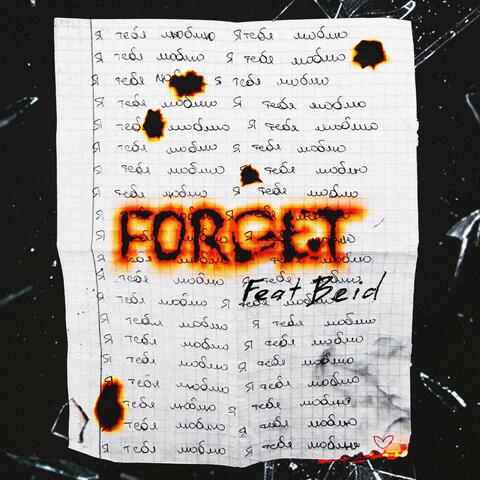 Я тебя люблю Я тебя люблю
Я тебя люблю Я тебя люблю
Я тебя люблю Я тебя люблю
Я тебя люблю Я тебя люблю
Я тебя люблю Я тебя люблю
Я тебя люблю Я тебя люблю
Я тебя люблю Я тебя люблю
Я тебя люблю Я тебя люблю
Я тебя люблю Я тебя люблю
FORGET
Feat Beid
Я тебя люблю Я тебя люблю
Я тебя люблю Я тебя люблю
Я тебя люблю Я тебя люблю
Я тебя люблю Я тебя люблю
Я тебя люблю Я тебя люблю
Я тебя люблю Я тебя люблю
Я тебя люблю Я тебя люблю